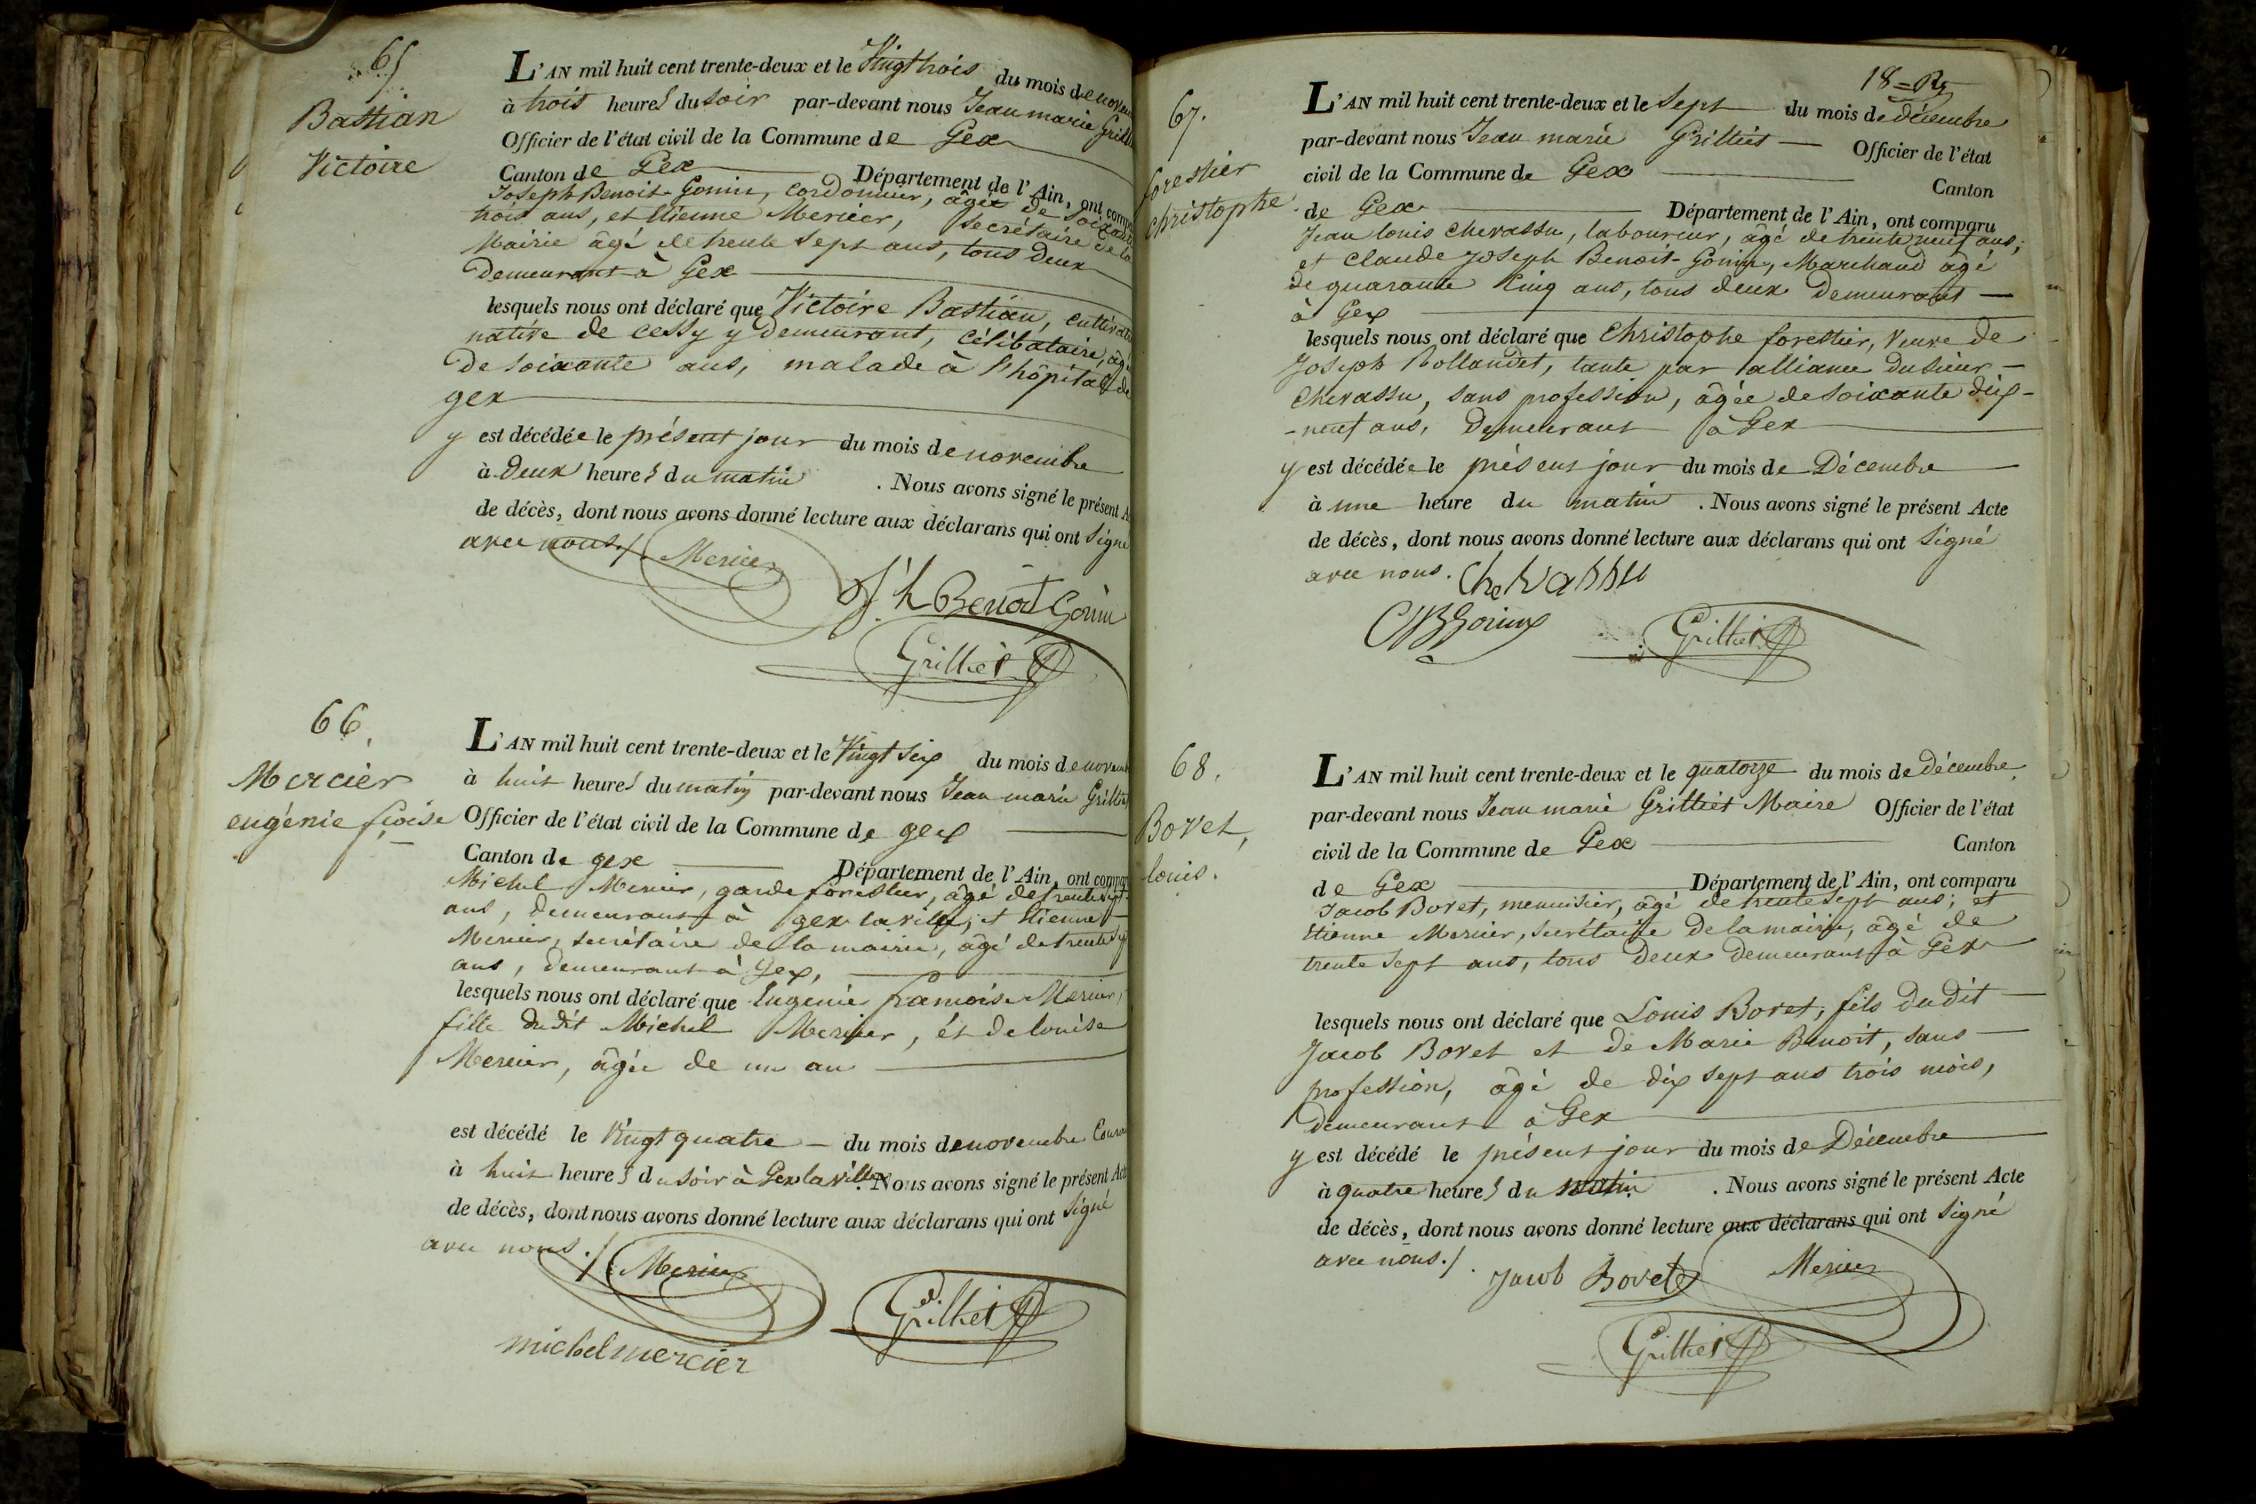 65
Bastian
Victoire
L'AN mil huit cent trente-deux et le Vingt trois du mois de novem
à trois heures du soir par-devant nous Jean marie Grilli
Officier de l'état civil de la Commune de Gex
Canton de Gex Département de l'Ain, ont compa
Joseph Benoit-Gonin, cordonnier, âgé de soixante
trois ans, et Etienne Mercier, secrétaire de la
Mairie âgé de trente sept ans, tous deux
demeurant à Gex
lesquels nous ont déclaré que Victoire Bastian, cultivat
native de Cessy y demeurant, célibataire, âgé
de soixante ans, malade à l'hôpital de
gex
y est décédée le présent jour du mois de novembre
à Deux heures du matin . Nous avons signé le présent A
de décès, dont nous avons donné lecture aux déclarans qui ont signé
avec nous./. Mercier
J.h Benoit Gonin
Grilliet
66.
Mercier
eugénie f.çoise
L'AN mil huit cent trente-deux et le Vingt six du mois de novem
à huit heures du matin par-devant nous Jean marie Grillie
Officier de l'état civil de la Commune de gex
Canton de gex Département de l'Ain, ont compar
Michel Mercier, garde forestier, âgé de trente sept
ans, demeurant à gex la ville, et Etienne
Mercier, secrétaire de la mairie, âgé de trente sept
ans, demeurant à Gex,
lesquels nous ont déclaré que Eugenie francoise Mercier,
fille dudit Michel Mercier, et de louise
Mercier, âgée de un an
est décédé le Vingt quatre du mois de novembre Couran
à huit heures du soir à Gex la ville. Nous avons signé le présent Act
de décès, dont nous avons donné lecture aux déclarans qui ont signé
avec nous./. Mercier
Grilliet
michel mercier
18=
67.
forestier
christophe
L'AN mil huit cent trente-deux et le sept du mois de décembre
par-devant nous Jean marie Grilliet Officier de l'état
civil de la Commune de Gex Canton
de Gex Département de l'Ain, ont comparu
Jean louis chevassu, laboureur, âgé de trente neuf ans;
et Claude Joseph Benoit-Gonin, Marchand âgé
de quarante Cinq ans, tous deux demeurant
à Gex
lesquels nous ont déclaré que Christophe forestier, Veuve de
Joseph Rollandet, tante par alliance du sieur
Chevassu, sans profession, âgée de soixante dix-
-neuf ans, demeurant à Gex
y est décédée le présent jour du mois de Décembre
à une heure du matin . Nous avons signé le présent Acte
de décès, dont nous avons donné lecture aux déclarans qui ont signé
avec nous. Chevassu
CJBGonin
Grilliet
68.
Bovet,
louis.
L'AN mil huit cent trente-deux et le quatorze du mois de décembre
par-devant nous Jean marie Grilliet Maire Officier de l'état
civil de la Commune de Gex Canton
de Gex Département de l'Ain, ont comparu
Jacob Bovet, menuisier, âgé de trente sept ans; et
Etienne Mercier, secrétaire de la mairie, âgé de
trente sept ans, tous deux demeurant à Gex
lesquels nous ont déclaré que Louis Bovet, fils dudit
Jacob Bovet et de Marie Benoit, sans
profession, âgé de dix sept ans trois mois,
demeurant à Gex
y est décédé le présent jour du mois de Décembre
à quatre heures du matin . Nous avons signé le présent Acte
de décès, dont nous avons donné lecture aux déclarans qui ont signé
avec nous./. Jacob Bovet Mercier
Grilliet